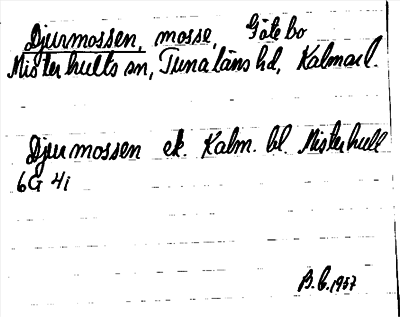 Djurmossen, mosse, Götebo
Misterhults sn, Tunaläns hd, Kalmar l.
Djurmossen ek. Kalm. bl Misterhult
6G 4i
B.C. 1957